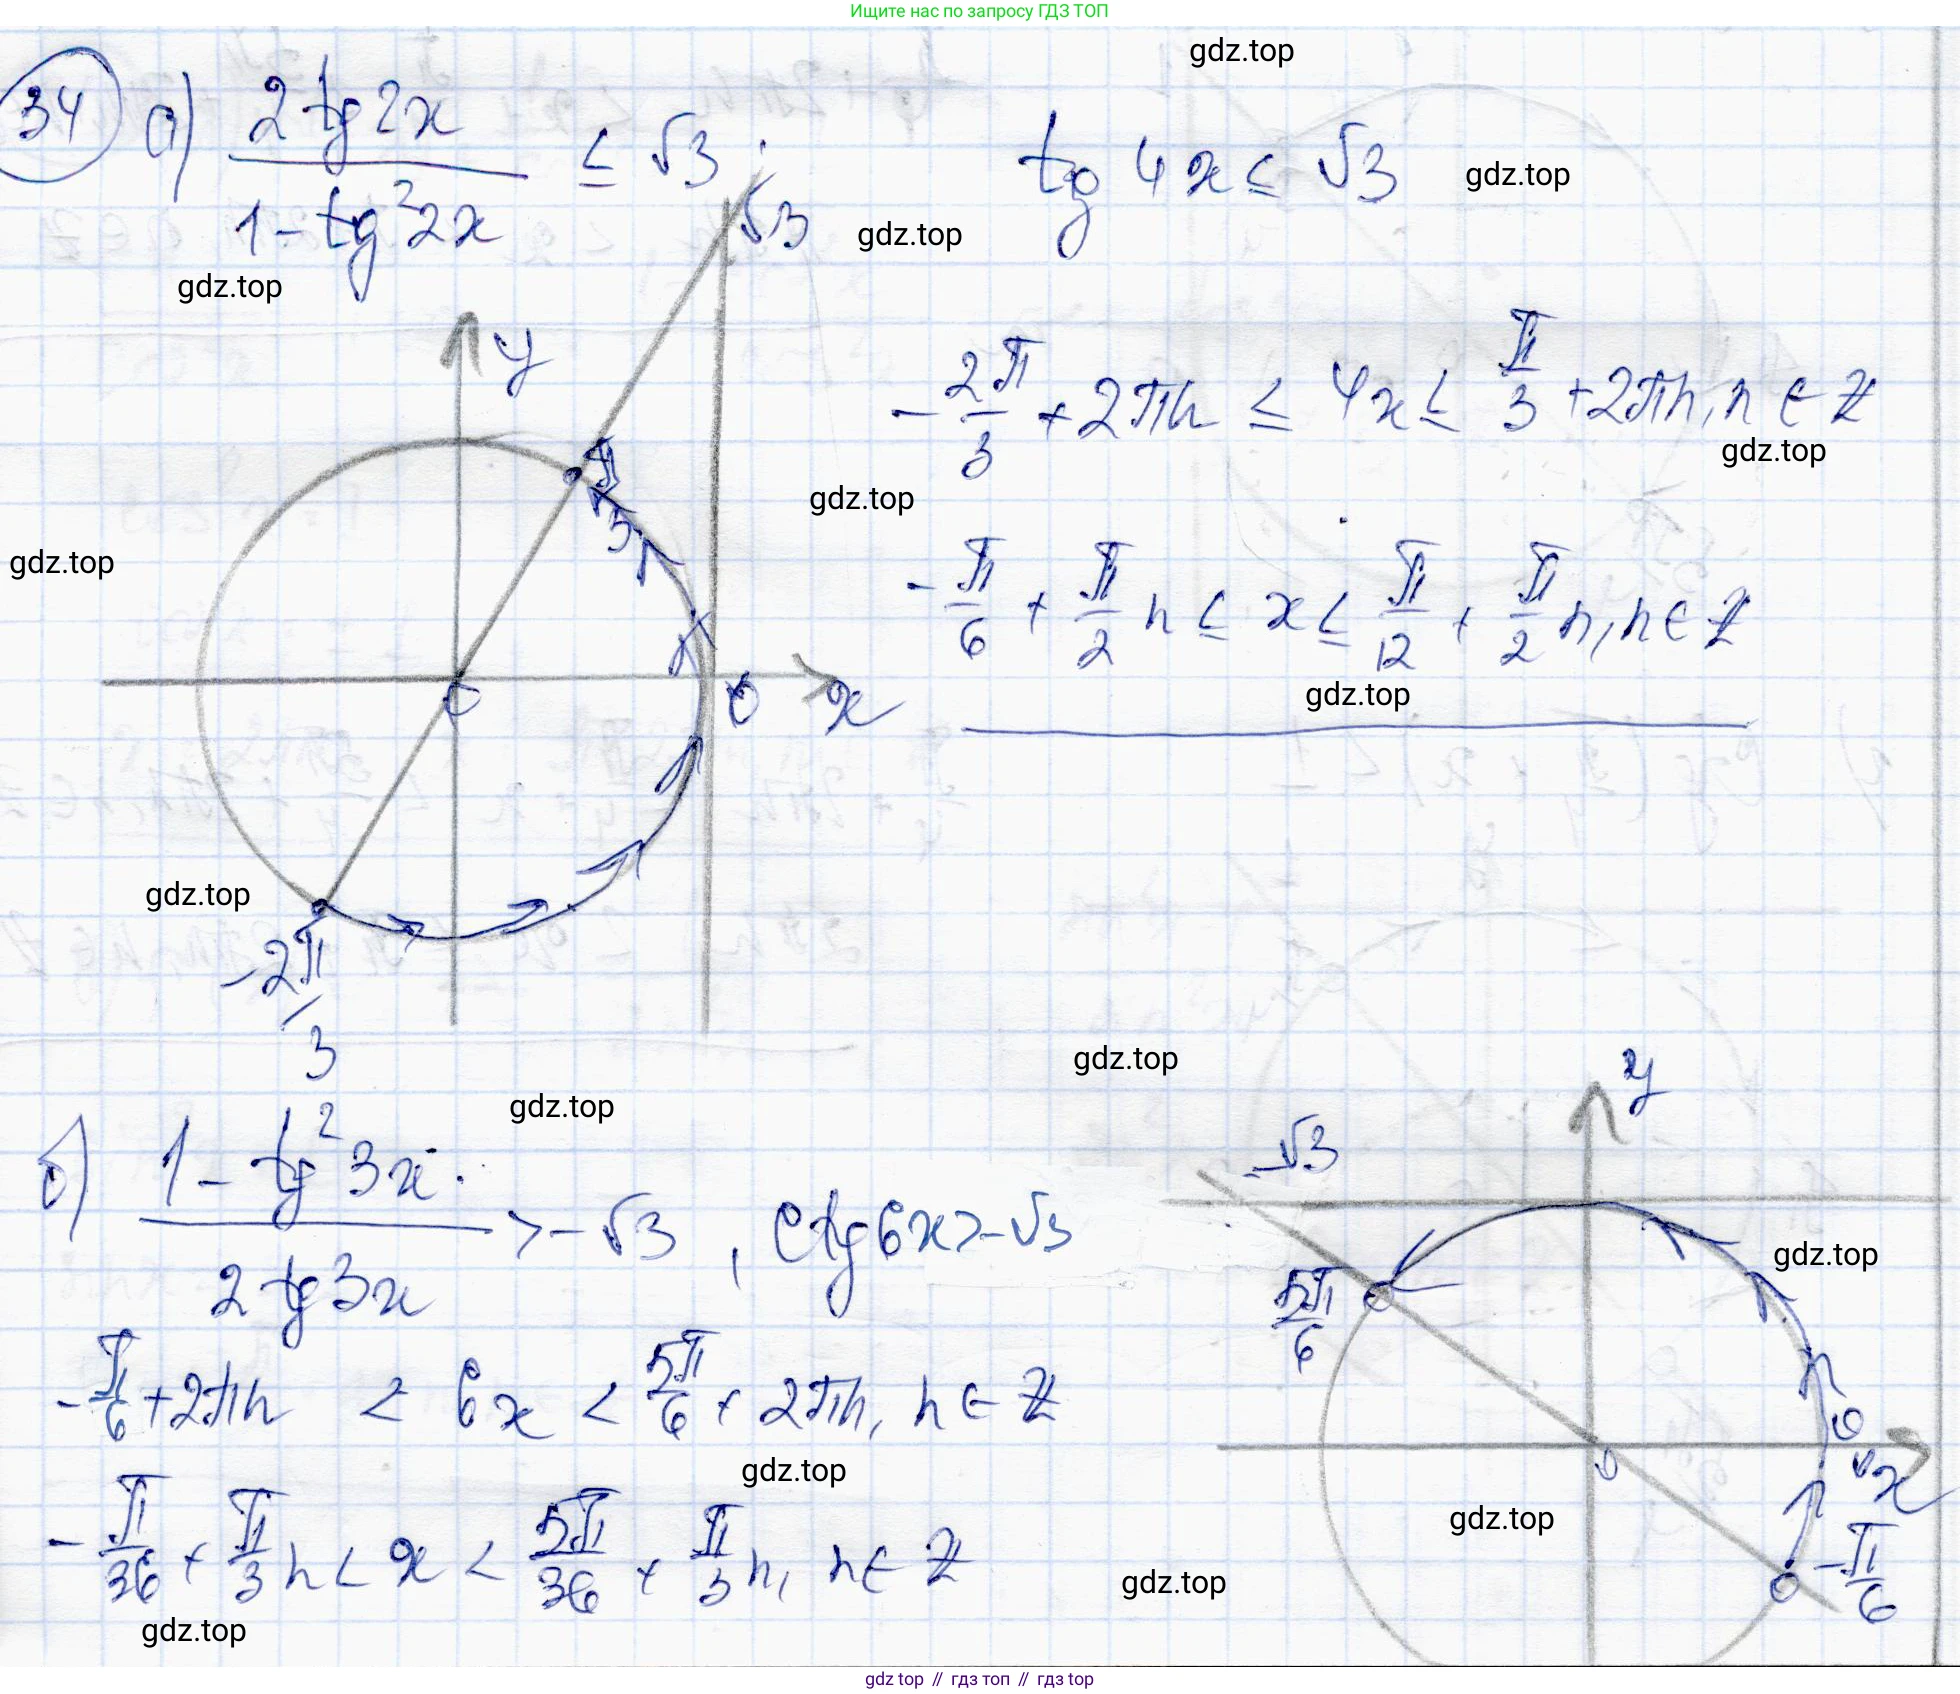 Ищите нас по запросу ГДЗ ТОП
gdz.top
34 а) 2 tg 2x / (1 - tg² 2x) ≤ √3 ; tg 4x ≤ √3
gdz.top
gdz.top
gdz.top
√3
y
-2π/3 + 2πn ≤ 4x ≤ π/3 + 2πn, n ∈ Z
gdz.top
π/3
gdz.top
gdz.top
-π/6 + π/2 n ≤ x ≤ π/12 + π/2 n, n ∈ Z
gdz.top
0
0
x
gdz.top
-2π/3
gdz.top
gdz.top
y
б) (1 - tg² 3x) / (2 tg 3x) > -√3 , ctg 6x > -√3
-√3
gdz.top
5π/6
-π/6 + 2πn < 6x < 5π/6 + 2πn, n ∈ Z
0
0
x
gdz.top
gdz.top
-π/36 + π/3 n < x < 5π/36 + π/3 n, n ∈ Z
-π/6
gdz.top
gdz.top
gdz top // гдз топ // гдз top